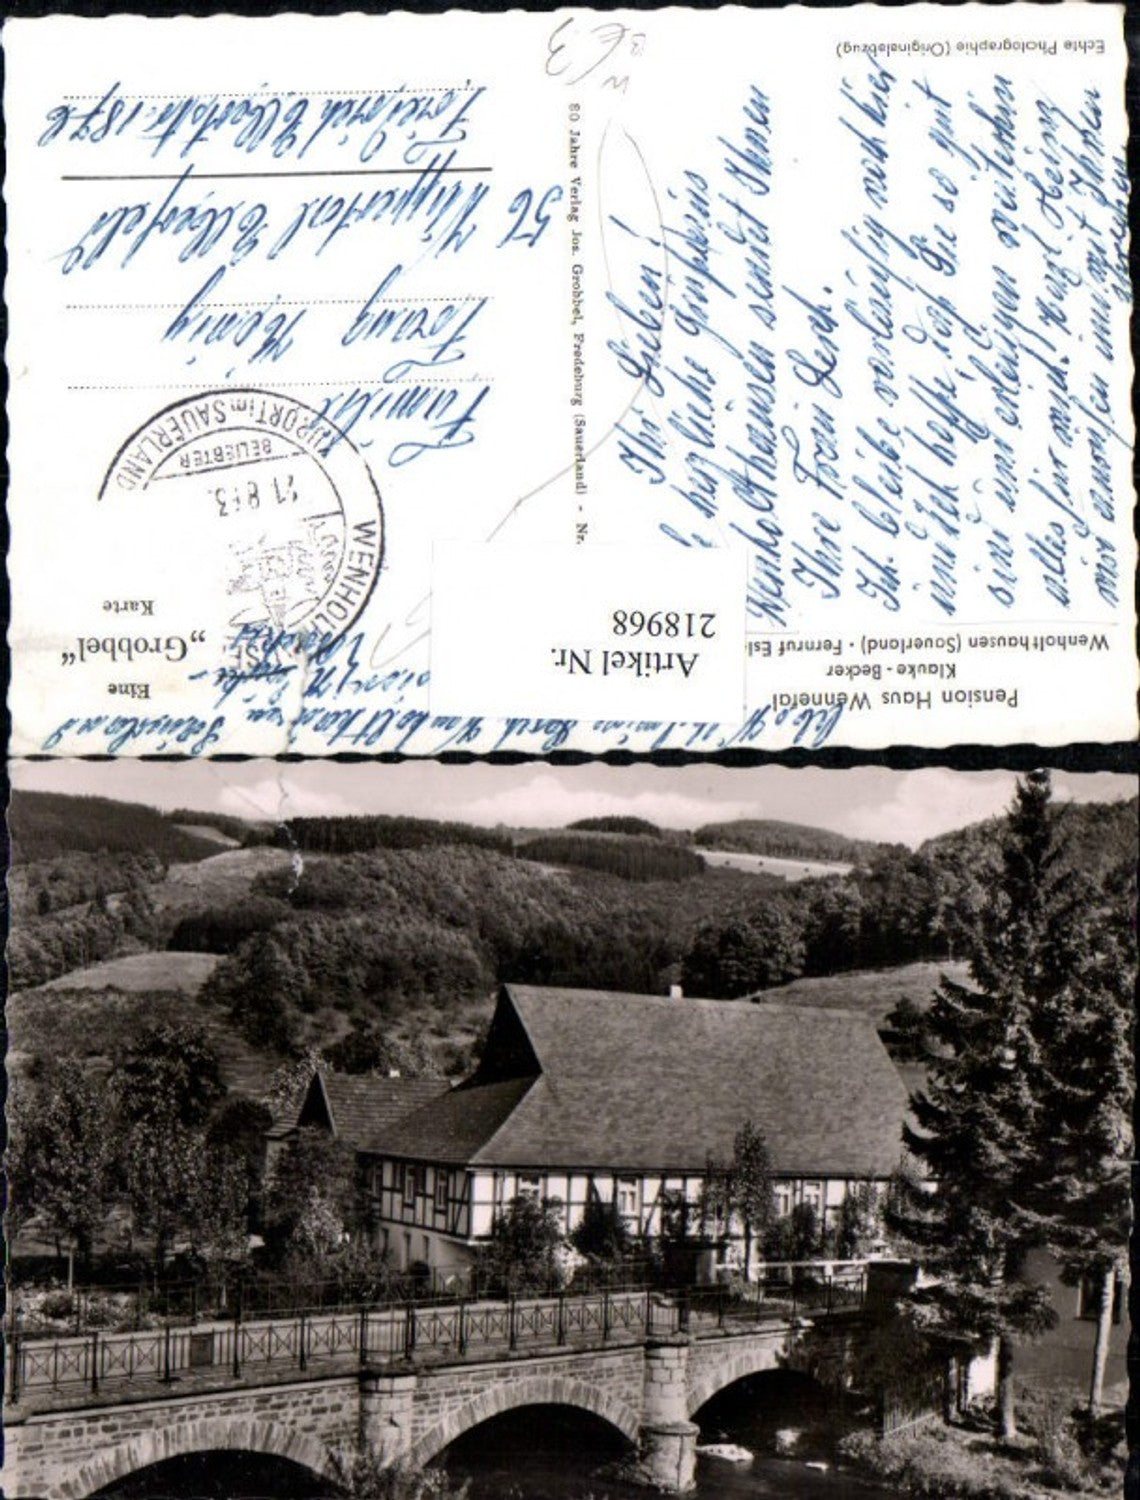 Pension Haus Wennetal
Klauke - Becker
Wenholthausen (Sauerland) · Fernruf Esl
Ihr Lieben!
herzliche Grüße aus
Wenholthausen sendet Ihnen
Ihre Frau Lesch.
Ich bleibe vorläufig noch hier
und ich hoffe, daß Sie so gut
sind und erledigen weiterhin
alles für mich.
mir mit Ihnen
Echte Photographie (Originalabzug)
Artikel Nr.
218968
80 Jahre Verlag Jos. Grobbel, Fredeburg (Sauerland) - Nr.
Eine
„Grobbel“
Karte
WENHOL
KURORT im SAUERLAND
BELIEBTER
Familie
Franz König
56 Wuppertal Elberfeld
Friedrich Ebertstr. 187a
Wenholthausen Sauerland
€ 3